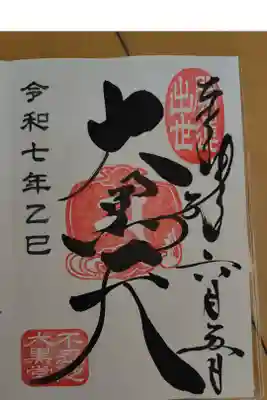 六月五日
出世
大黒天
令和七年乙巳
不忍池
大黒堂